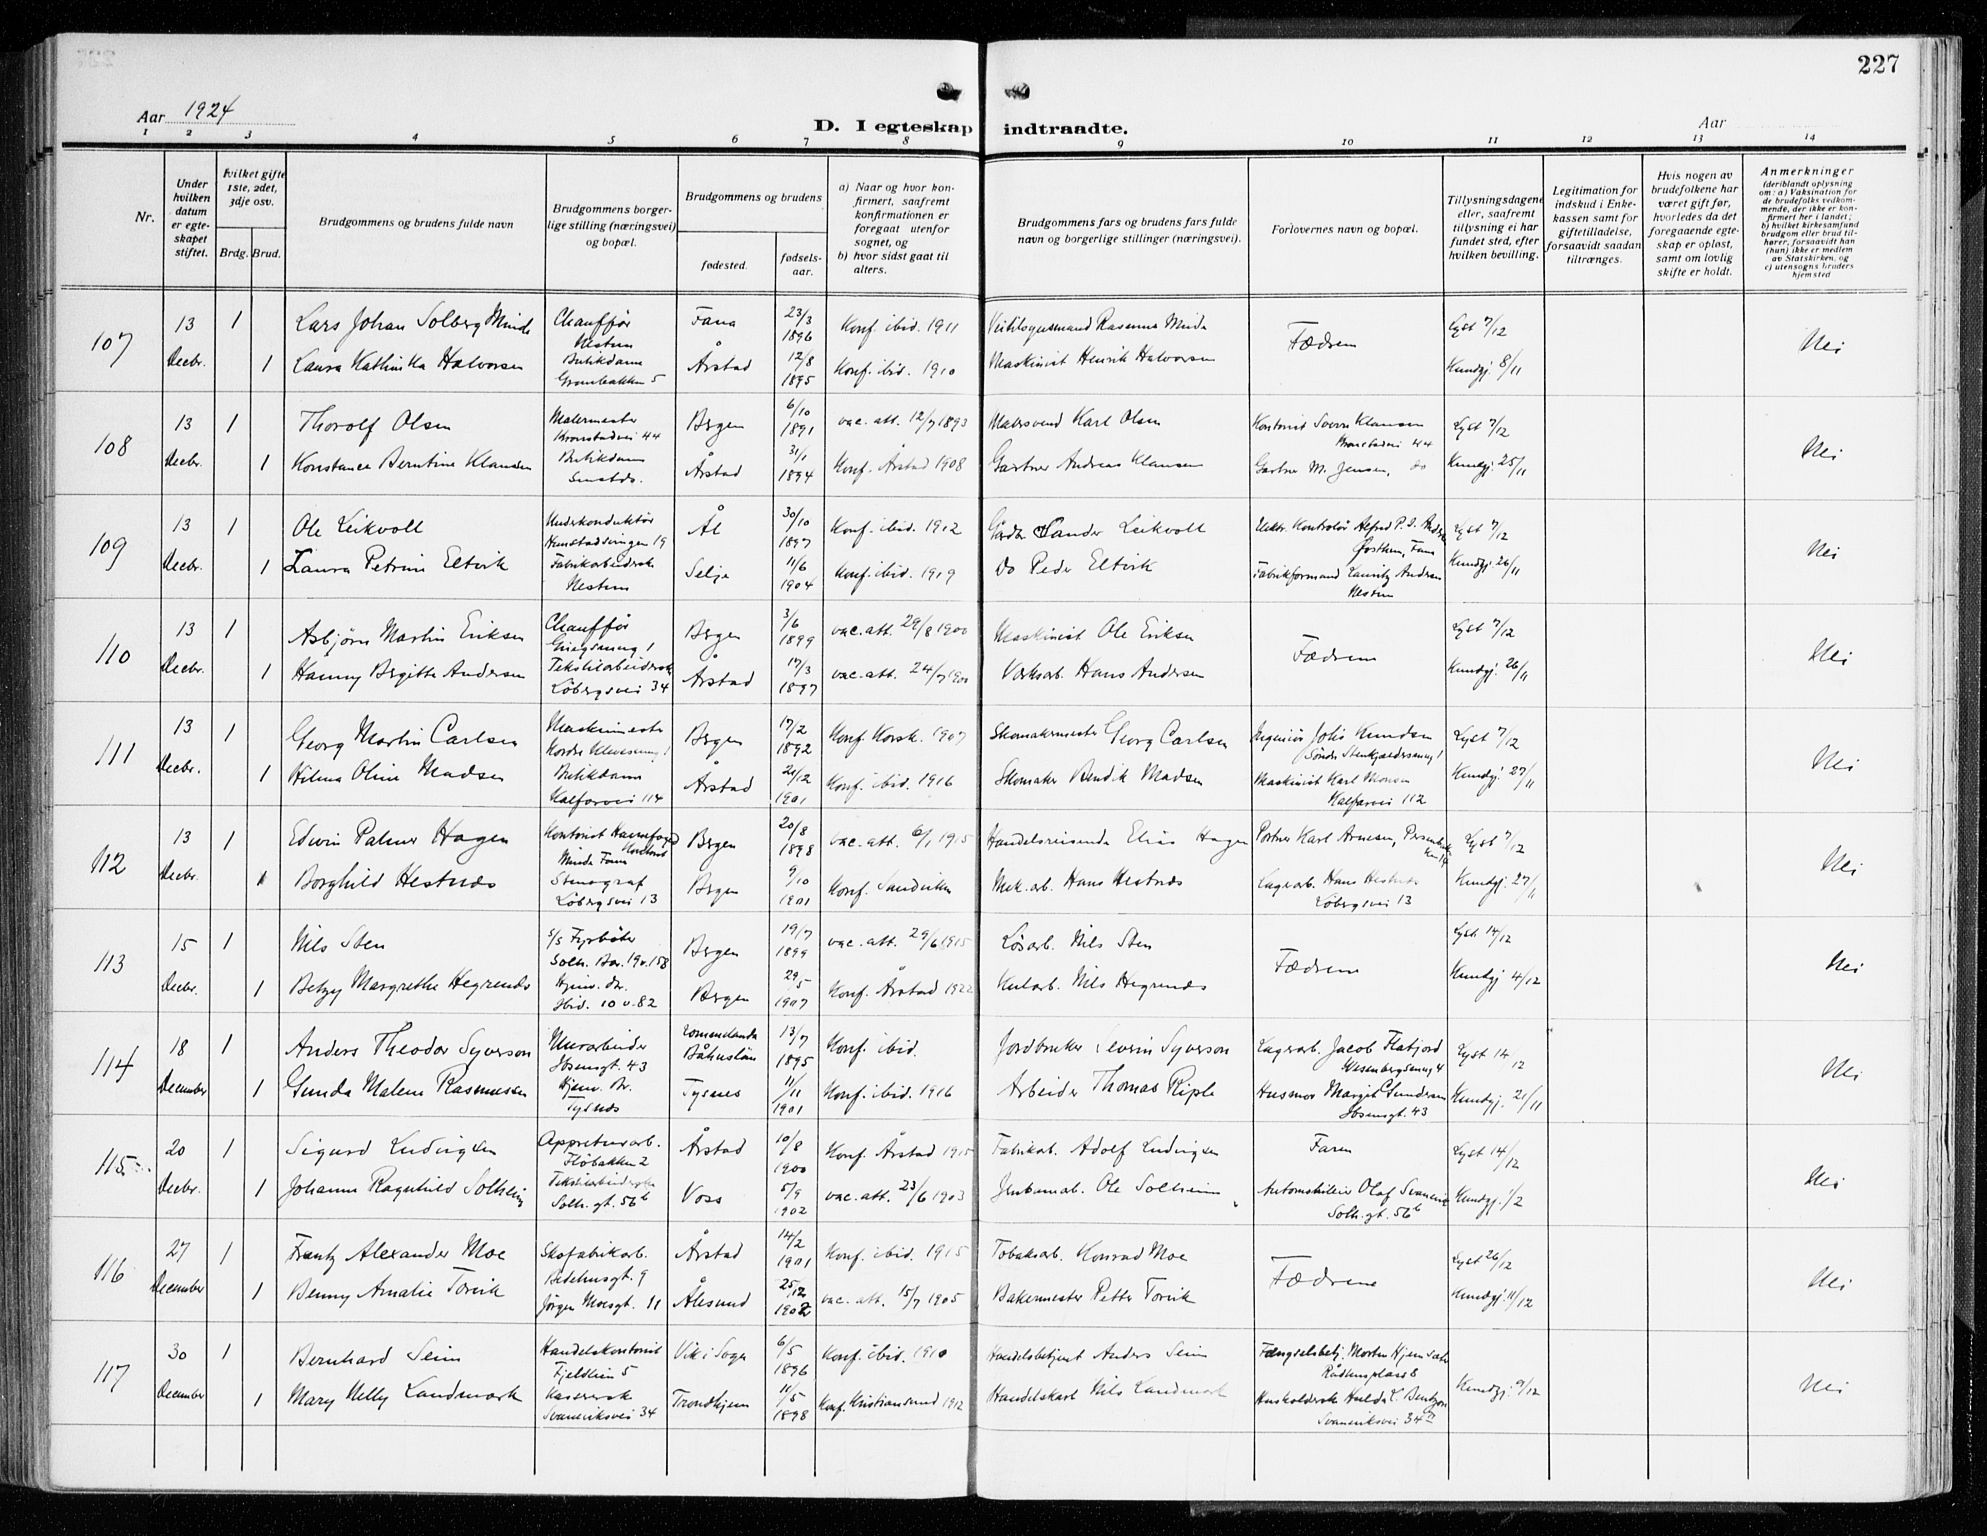 227
Aar 1924
D. I egteskap indtraadte.
Aar
1 2 3 4 5 6 7 8 9 10 11 12 13 14
Nr.
Under hvilken datum er egteskapet stiftet.
Hvilket gifte 1ste, 2det, 3dje osv.
Brdg. Brud.
Brudgommens og brudens fulde navn
Brudgommens borgerlige stilling (næringsvei) og bopæl.
Brudgommens og brudens
fødested.
fødselsaar.
a) Naar og hvor konfirmert, saafremt konfirmationen er foregaat utenfor sognet, og
b) hvor sidst gaat til alters.
Brudgommens fars og brudens fars fulde navn og borgerlige stillinger (næringsvei).
Forlovernes navn og bopæl.
Tillysningsdagene eller, saafremt tillysning ei har fundet sted, efter hvilken bevilling.
Legitimation for indskud i Enkekassen samt for giftetilladelse, forsaavidt saadan tiltrænges.
Hvis nogen av brudefolkene har været gift før, hvorledes da det foregaaende egteskap er opløst, samt om lovlig skifte er holdt.
Anmerkninger (deriblandt oplysning om: a) Vaksination for de brudefolks vedkommende, der ikke er konfirmert her i landet; b) hvilket kirkesamfund brudgom eller brud tilhører, forsaavidt han (hun) ikke er medlem av Statskirken, og c) utensogns bruders hjemsted
107 13 1 Lars Johan Solberg Minde Chauffør Nestun Fana 23/3 1896 Konf. ibid. 1911 Rasmus Minde Fædrene Lyst 7/12 Nei
Decbr. 1 Laura Kathinka Halvorsen Butikdame 5 Årstad 12/8 1895 Konf. ibid. 1910 Maskinist Henrik Halvorsen Kundgj. 8/11
108 13 1 Thorolf Olsen Malermester Kronstadvei 44 Bergen 6/10 1891 vac. att. 12/7 1893 Malersvend Karl Olsen Kontorist Sverre Klausen Kronstadvei 44 Lyst 7/12 Nei
Decbr. 1 Konstance Berntine Klausen Butikdame Årstad 31/1 1894 Konf. Årstad 1908 Gartner Andreas Klausen Gartner M. Jensen, do Kundgj. 25/11
109 13 1 Ole Leikvoll Underkonduktør 19 Ål 30/10 1897 Konf. ibid. 1912 Gårdbr. Sander Leikvoll Kontrolør Alfred P. Fana Lyst 7/12 Nei
Decbr. 1 Laura Petrine Eltvik Fabrikarbeiderske Nestun Selje 11/6 1904 Konf. ibid. 1919 Do Peder Eltvik Fabrikformand Lauritz Andersen Nestun Kundgj. 26/11
110 13 1 Asbjørn Martin Eriksen Chauffør 1 Bergen 3/6 1899 vac. att. 29/8 1900 Maskinist Ole Eriksen Fædrene Lyst 7/12 Nei
Decbr. 1 Hanny Bergitte Andersen Tekstilarbeiderske Løbergsvei 34 Årstad 17/3 1897 vac. att. 24/7 1900 Verksarb. Hans Andersen Kundgj. 26/11
111 13 1 Georg Martin Carlsen Maskinmester Nordre 1 Bergen 17/2 1892 Konf. Korsk. 1907 Skomakermester Georg Carlsen Ingeniør Johs Knudsen Lyst 7/12 Nei
Decbr. 1 Hilma Oline Madsen Butikdame Kalfarvei 114 Årstad 21/12 1901 Konf. ibid. 1916 Skomaker Bendik Madsen Maskinist Karl Monsen Kalfarvei 112 Kundgj. 27/11
112 13 1 Edvin Palmer Hagen Kontorist Minde Fana Bergen 20/8 1898 vac. att. 6/1 1915 Handelsreisende Elias Hagen Portner Karl Arnesen, Lyst 7/12 Nei
Decbr. 1 Borghild Hestnes Stenograf Løbergsvei 13 Bergen 9/10 1901 Konf. Sandviken Mek. arb. Hans Hestnes Lagerarb. Hans Hestnes Løbergsvei 13 Kundgj. 27/11
113 15 1 Nils Sten s/s Fyrbøter Solh. 19 v. 158 Bergen 19/7 1899 vac. att. 29/6 1915 Løsarb. Nils Sten Fædrene Lyst 14/12 Nei
Decbr. 1 Betzy Margrethe Hegrenæs Hjemv. dr. Ibid. 10 v. 82 Bergen 29/5 1907 Konf. Årstad 1922 Kularb. Nils Hegrenæs Kundgj. 4/12
114 18 1 Anders Theodor Syverson Murarbeider Ibsensgt. 43 Romelanda Båhuslän 13/7 1895 Konf. ibid. Jordbruker Severin Syverson Lagerarb. Jacob Flatjord Wesenbergsmug 4 Lyst 14/12 Nei
December 1 Gunda Malene Rasmussen Hjemv. dr. Tysnes Tysnes 11/11 1901 Konf. ibid. 1916 Arbeider Thomas Riple Husmor Margit Gundersen Ibsensgt. 43 Kundgj. 21/11
115 20 1 Sigurd Ludvigsen Appreturarb. Fløbakken 2 Årstad 10/8 1900 Konf. Årstad 1915 Fabrikarb. Adolf Ludvigsen Faren Lyst 14/12 Nei
Decbr. 1 Johanne Ragnhild Solheim Tekstilarbeiderske Solh. gt. 56b Voss 5/9 1902 vac. att. 23/6 1903 Jernbanearb. Ole Solheim Automobileier Olaf Solh. gt. 56b Kundgj. 1/2
116 27 1 Frantz Alexander Moe Skofabrikarb. Bedehusgt. 9 Årstad 14/2 1901 Konf. ibid. 1915 Tobaksarb. Konrad Moe Fædrene Lyst 26/12 Nei
December 1 Benny Amalie Torvik Jørgen Moesgt. 11 Ålesund 25/12 1902 vac. att. 15/7 1905 Bakermester Petter Torvik Kundgj. 11/12
117 30 1 Bernhard Seim Handelskontorist Fjeldlien 5 Vik i Sogn 6/5 1896 Konf. ibid. 1910 Handelsbetjent Anders Seim Fængselsbetj. Morten Hjemsæter Rådhusplass 8 Nei
December 1 Mary Nelly Landmark Kassererske Svaneviksvei 34 Trondhjem 11/5 1898 Konf. Kristiansund 1912 Handelskarl Nils Landmark Husholderske Hulda L. Bentzon Svaneviksvei 34 Kundgj. 9/12